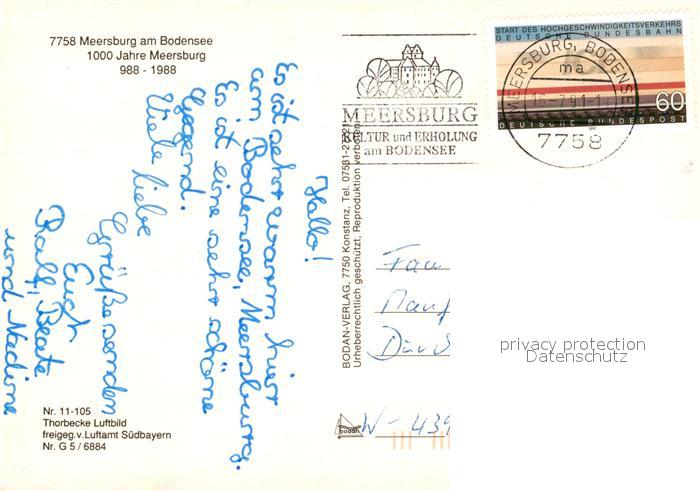 7758 Meersburg am Bodensee
1000 Jahre Meersburg
988 - 1988
Hallo!
Es ist sehr warm hier
am Bodensee, Meersburg.
Es ist eine sehr schöne
Gegend.
Viele liebe
Grüße senden
Euch
Ralf, Beate
und Nadine
Nr. 11-105
Thorbecke Luftbild
freigeg.v.Luftamt Südbayern
Nr. G 5 / 6884
BODAN-VERLAG, 7750 Konstanz, Tel. 07531-
Urheberrechtlich geschützt, Reproduktion verboten
bodan
MEERSBURG
KULTUR und ERHOLUNG
am BODENSEE
START DES HOCHGESCHWINDIGKEITSVERKEHRS
DEUTSCHE BUNDESBAHN
60
DEUTSCHE BUNDESPOST
MEERSBURG, BODENSEE
ma
7758
Fam
W- 439
privacy protection
Datenschutz